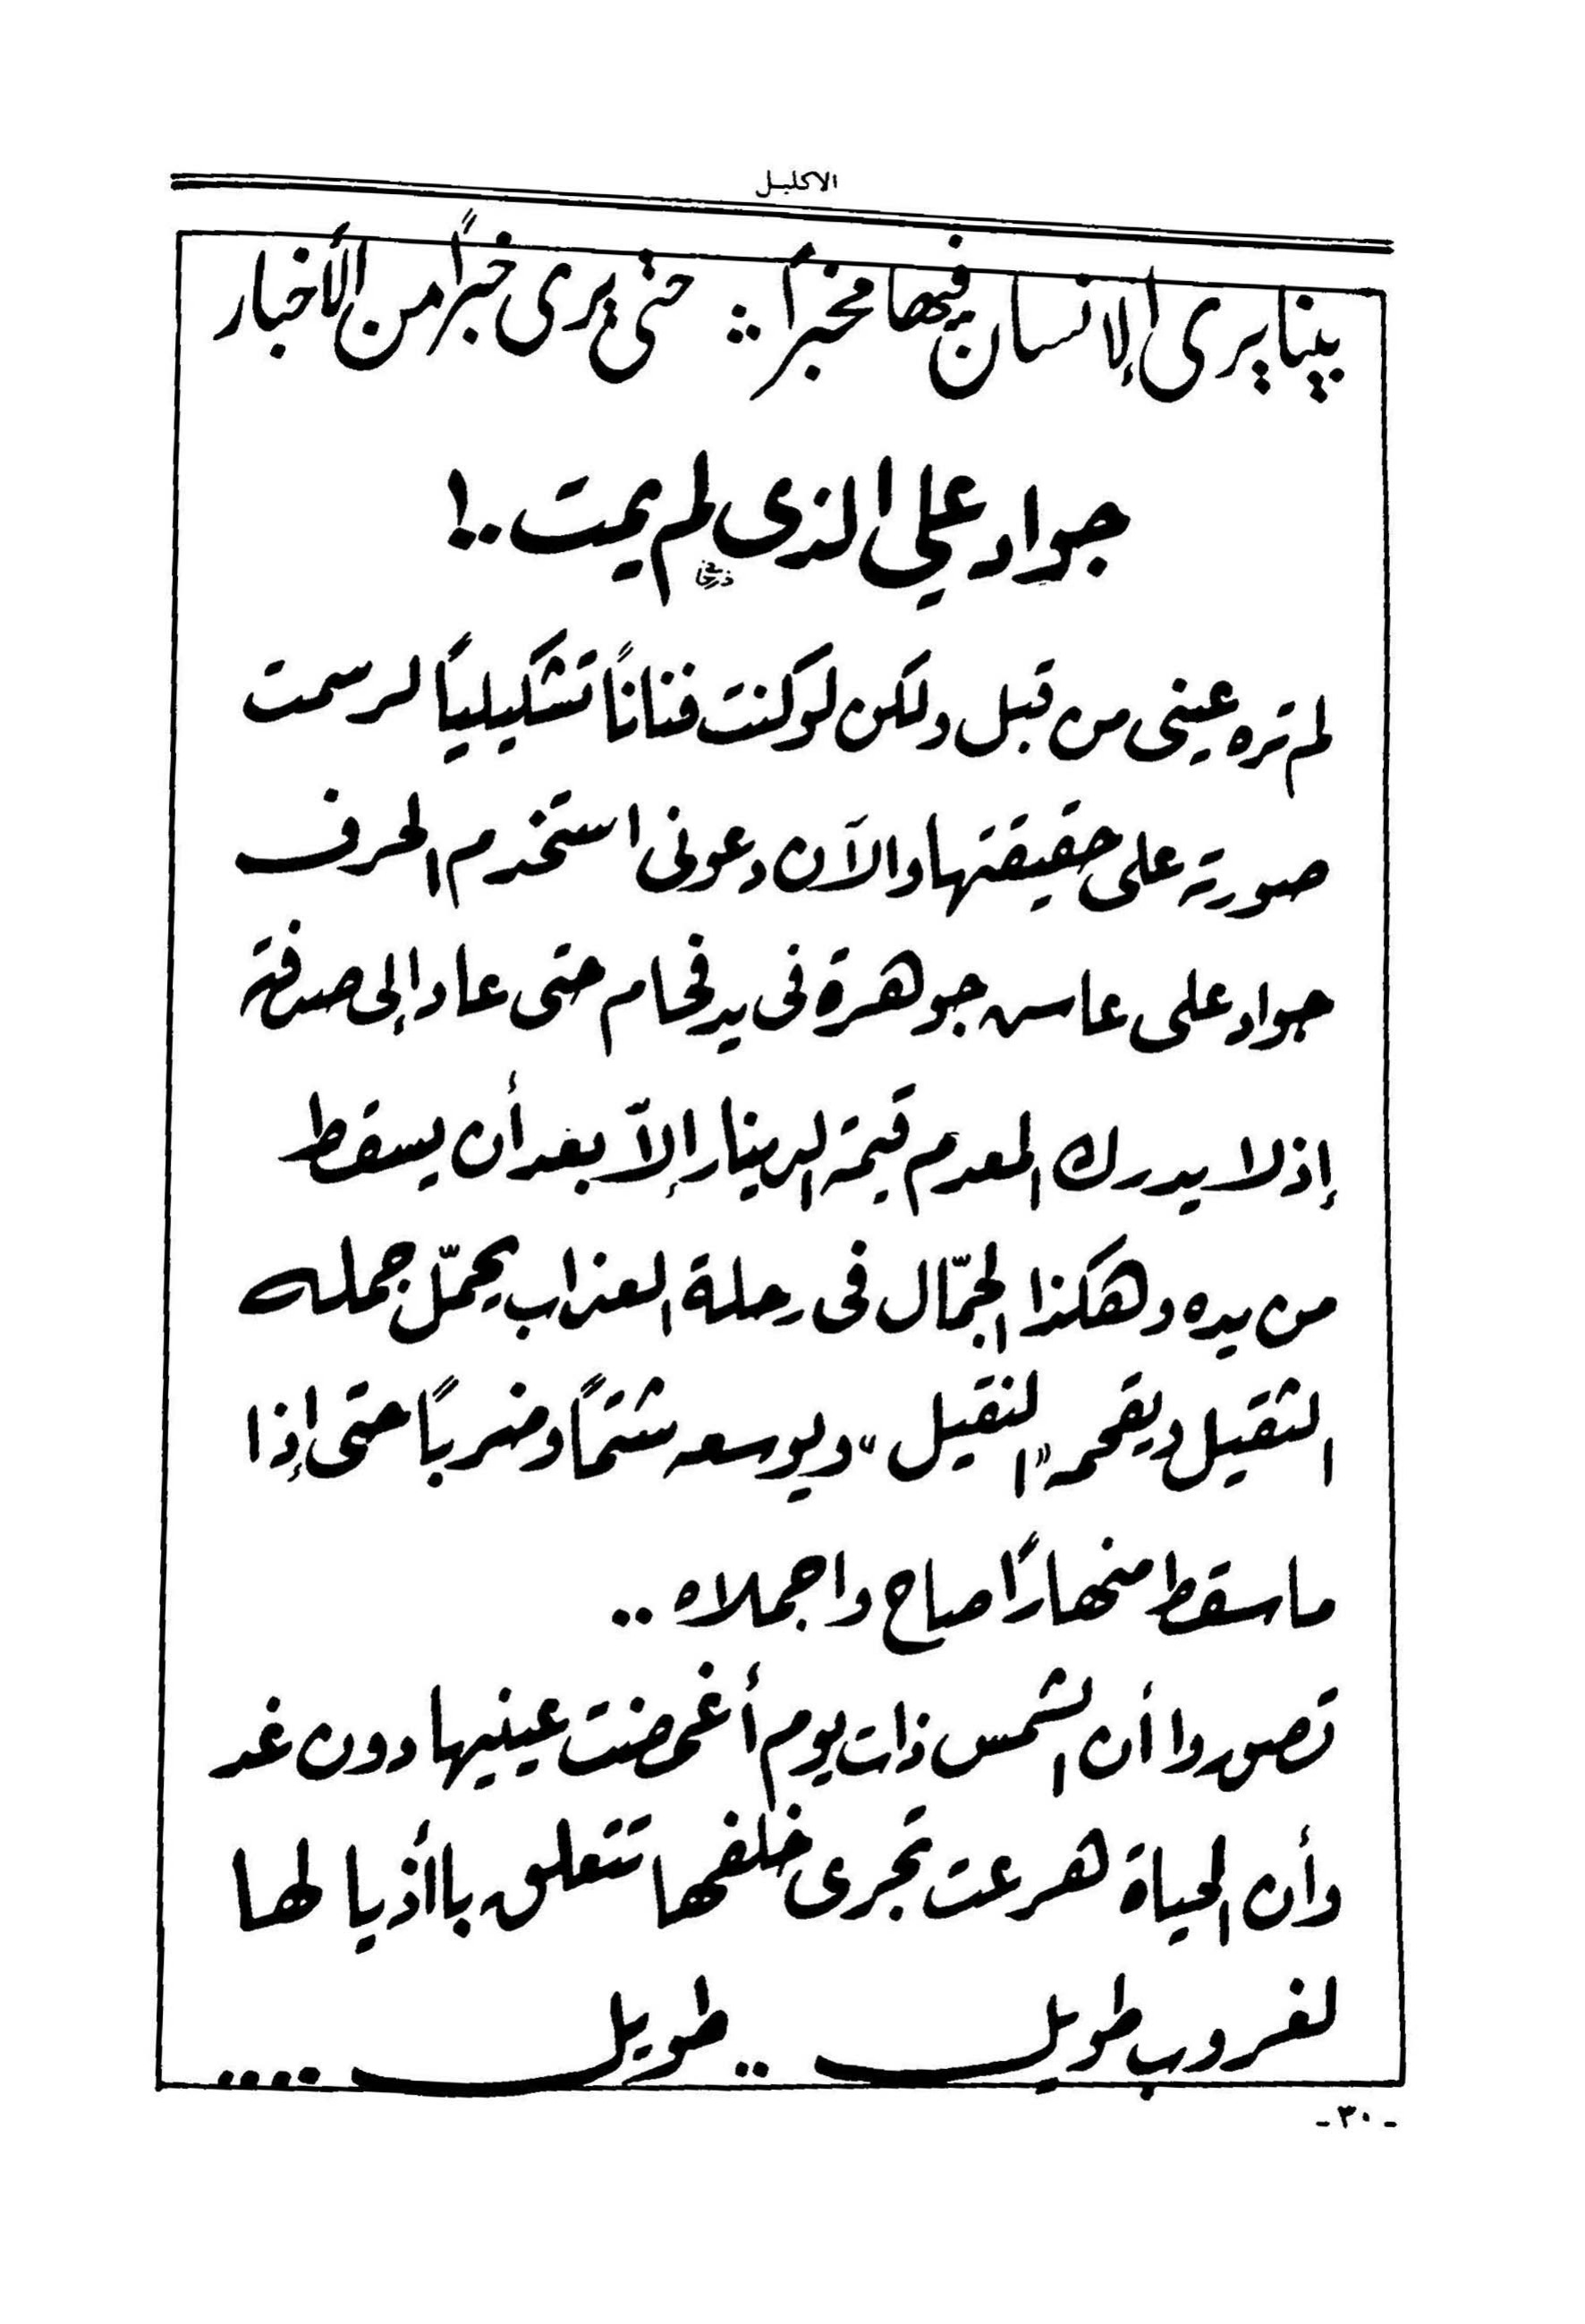 الاكليل
بينا يرى الإنسان فيها مخبراً :: حتى يرى خبراً من الأخبار
جواد علي الذى لم يمت..!
لم تره عينى من قبل ولكن لو كنت فناناً تشكيلياً لرسمت
صورته على حقيقتها والآن دعونى استخدم الحرف
جواد على عاش جوهرة فى يد فحام حتى عاد إلى صدفته
إذ لا يدرك المعدم قيمة الدينار إلاّ بعد أن يسقط
من يده وهكذا الجمّال فى رحلة العذاب يحمّل جمله
الثقيل ويقحمه "النقيل" ويوسعه شتماً وضرباً حتى إذا
ما سقط منهاراً صاح واجملاه ..
تصوروا أن الشمس ذات يوم أغمضت عينيها دون غد
وأن الحياة هرعت تجرى خلفها تتعلق باأذيا لها
لغروب طويل .. طويل ....
- ٣٠ -